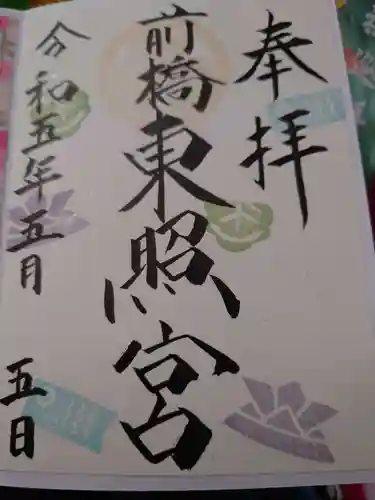 奉拝
前橋東照宮
令和五年五月五日